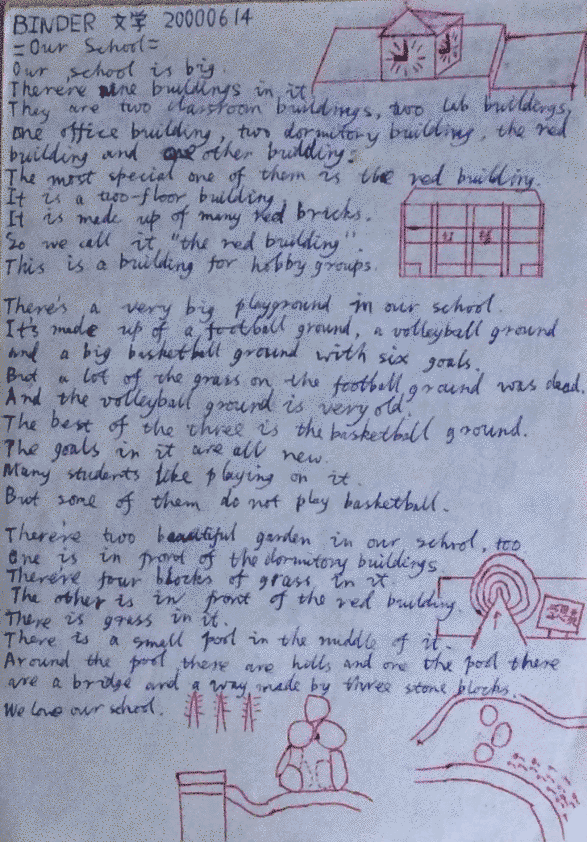 BINDER 文学 20000614
=Our School=
Our school is big.
There're nine buildings in it.
They are two classroom buildings, two lab buildings,
one office building, two dormitory building, the red
building and one other building.
The most special one of them is the red building.
It is a two-floor building.
It is made up of many red bricks.
So we call it "the red building".
This is a building for hobby groups.
There's a very big playground in our school.
It's made up of a football ground, a volleyball ground
and a big basketball ground with six goals.
But a lot of the grass on the football ground was dead.
And the volleyball ground is very old.
The best of the three is the basketball ground.
The goals in it are all new.
Many students like playing on it.
But some of them do not play basketball.
There're two beautiful garden in our school, too
One is in front of the dormitory buildings.
There're four blocks of grass in it.
The other is in front of the red building.
There is grass in it.
There is a small pool in the middle of it.
Around the pool there are hills and one the pool there
are a bridge and a way made by three stone blocks.
We love our school.